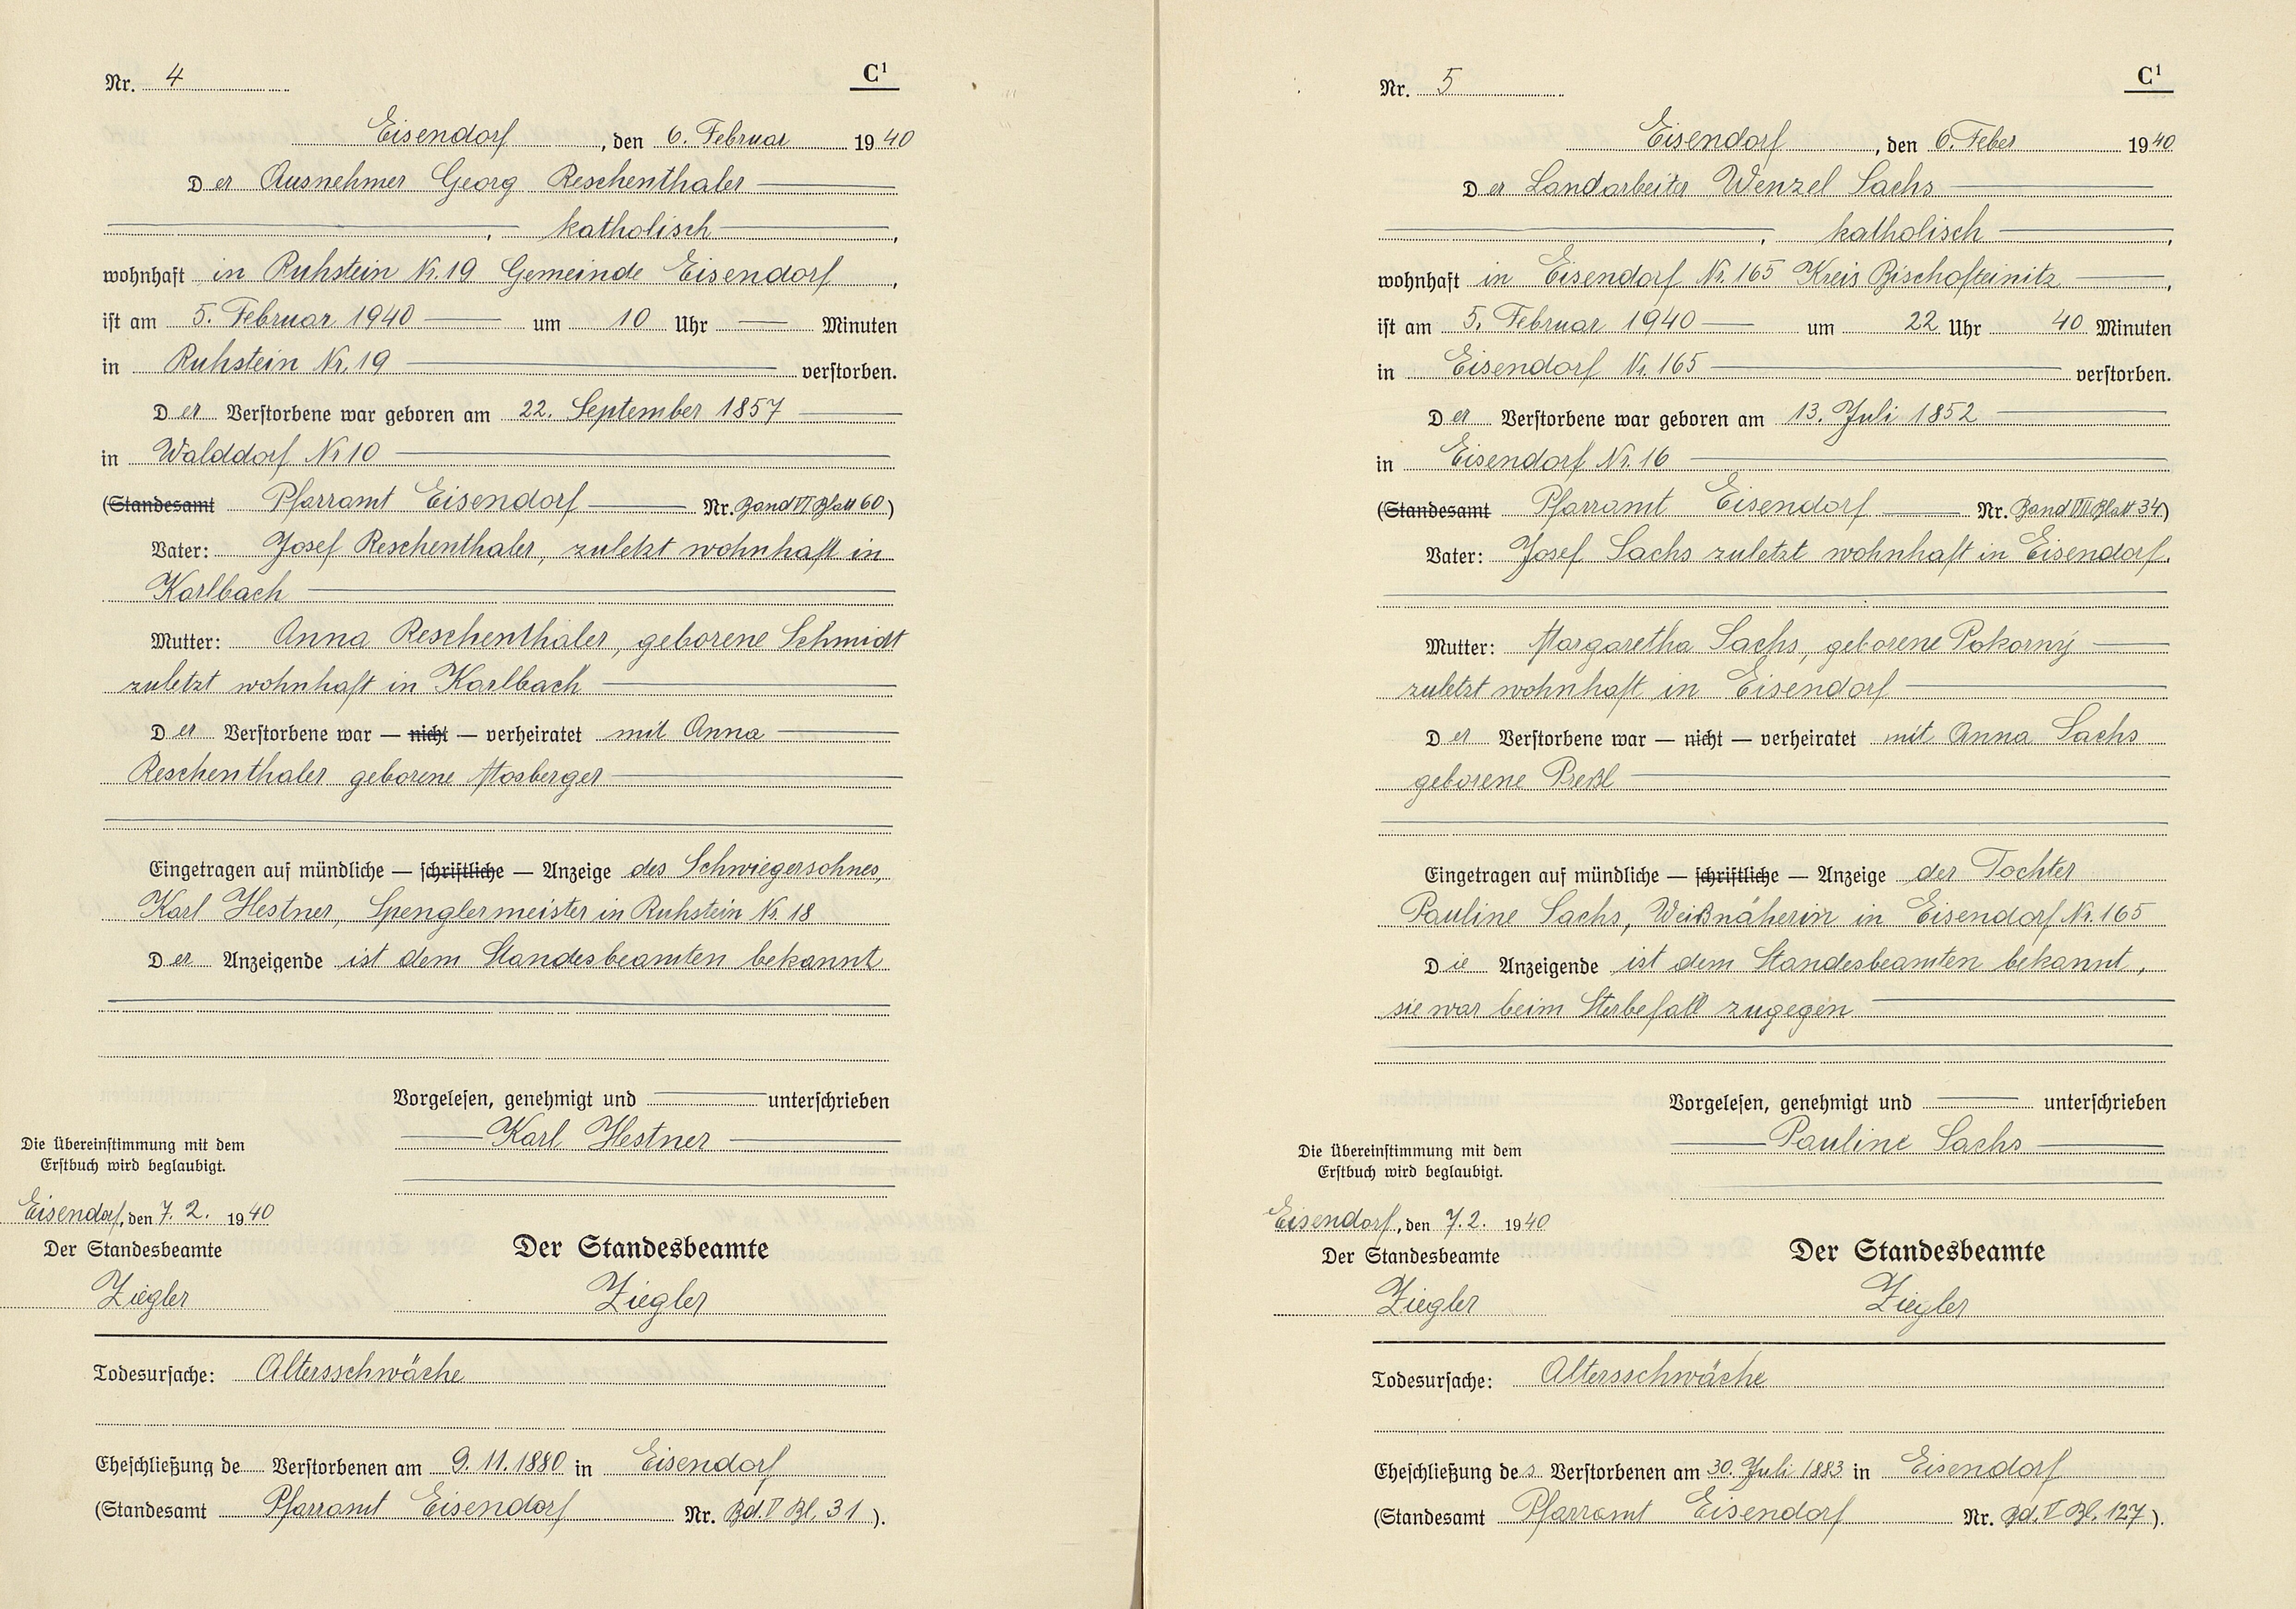 Nr. 4
C¹
Eisendorf, den 6. Februar 1940
Der Ausnehmer Georg Reschenthaler
, katholisch,
wohnhaft in Ruhstein Nr. 19 Gemeinde Eisendorf,
ist am 5. Februar 1940 um 10 Uhr Minuten
in Ruhstein Nr. 19 verstorben.
Der Verstorbene war geboren am 22. September 1857
in Walddorf Nr 10
(Standesamt Pfarramt Eisendorf Nr. Band VI Blatt 60)
Vater: Josef Reschenthaler, zuletzt wohnhaft in
Karlbach
Mutter: Anna Reschenthaler, geborene Schmidt
zuletzt wohnhaft in Karlbach
Der Verstorbene war — nicht — verheiratet mit Anna
Reschenthaler geborene Mosberger
Eingetragen auf mündliche — schriftliche — Anzeige des Schwiegersohnes,
Karl Hestner, Spenglermeister in Ruhstein Nr. 18
Der Anzeigende ist dem Standesbeamten bekannt
Vorgelesen, genehmigt und unterschrieben
Karl Hestner
Die Übereinstimmung mit dem
Erstbuch wird beglaubigt.
Eisendorf, den 7. 2. 1940
Der Standesbeamte
Ziegler
Der Standesbeamte
Ziegler
Todesursache: Altersschwäche
Eheschließung de Verstorbenen am 9. 11. 1880 in Eisendorf
(Standesamt Pfarramt Eisendorf Nr. Bd. V Bl. 31).
Nr. 5
C¹
Eisendorf, den 6. Feber 1940
Der Landarbeiter Wenzel Sachs
, katholisch,
wohnhaft in Eisendorf Nr. 165 Kreis Bischofteinitz,
ist am 5. Februar 1940 um 22 Uhr 40 Minuten
in Eisendorf Nr. 165 verstorben.
Der Verstorbene war geboren am 13. Juli 1852
in Eisendorf Nr. 16
(Standesamt Pfarramt Eisendorf Nr. Band VIII Blatt 34)
Vater: Josef Sachs zuletzt wohnhaft in Eisendorf.
Mutter: Margaretha Sachs, geborene Pokorny
zuletzt wohnhaft in Eisendorf
Der Verstorbene war — nicht — verheiratet mit Anna Sachs
geborene Preßl
Eingetragen auf mündliche — schriftliche — Anzeige der Tochter
Pauline Sachs, Weißnäherin in Eisendorf Nr. 165
Die Anzeigende ist dem Standesbeamten bekannt,
sie war beim Sterbefall zugegen
Vorgelesen, genehmigt und unterschrieben
Pauline Sachs
Die Übereinstimmung mit dem
Erstbuch wird beglaubigt.
Eisendorf, den 7. 2. 1940
Der Standesbeamte
Ziegler
Der Standesbeamte
Ziegler
Todesursache: Altersschwäche
Eheschließung des Verstorbenen am 30. Juli 1883 in Eisendorf
(Standesamt Pfarramt Eisendorf Nr. Bd. V Bl. 127).